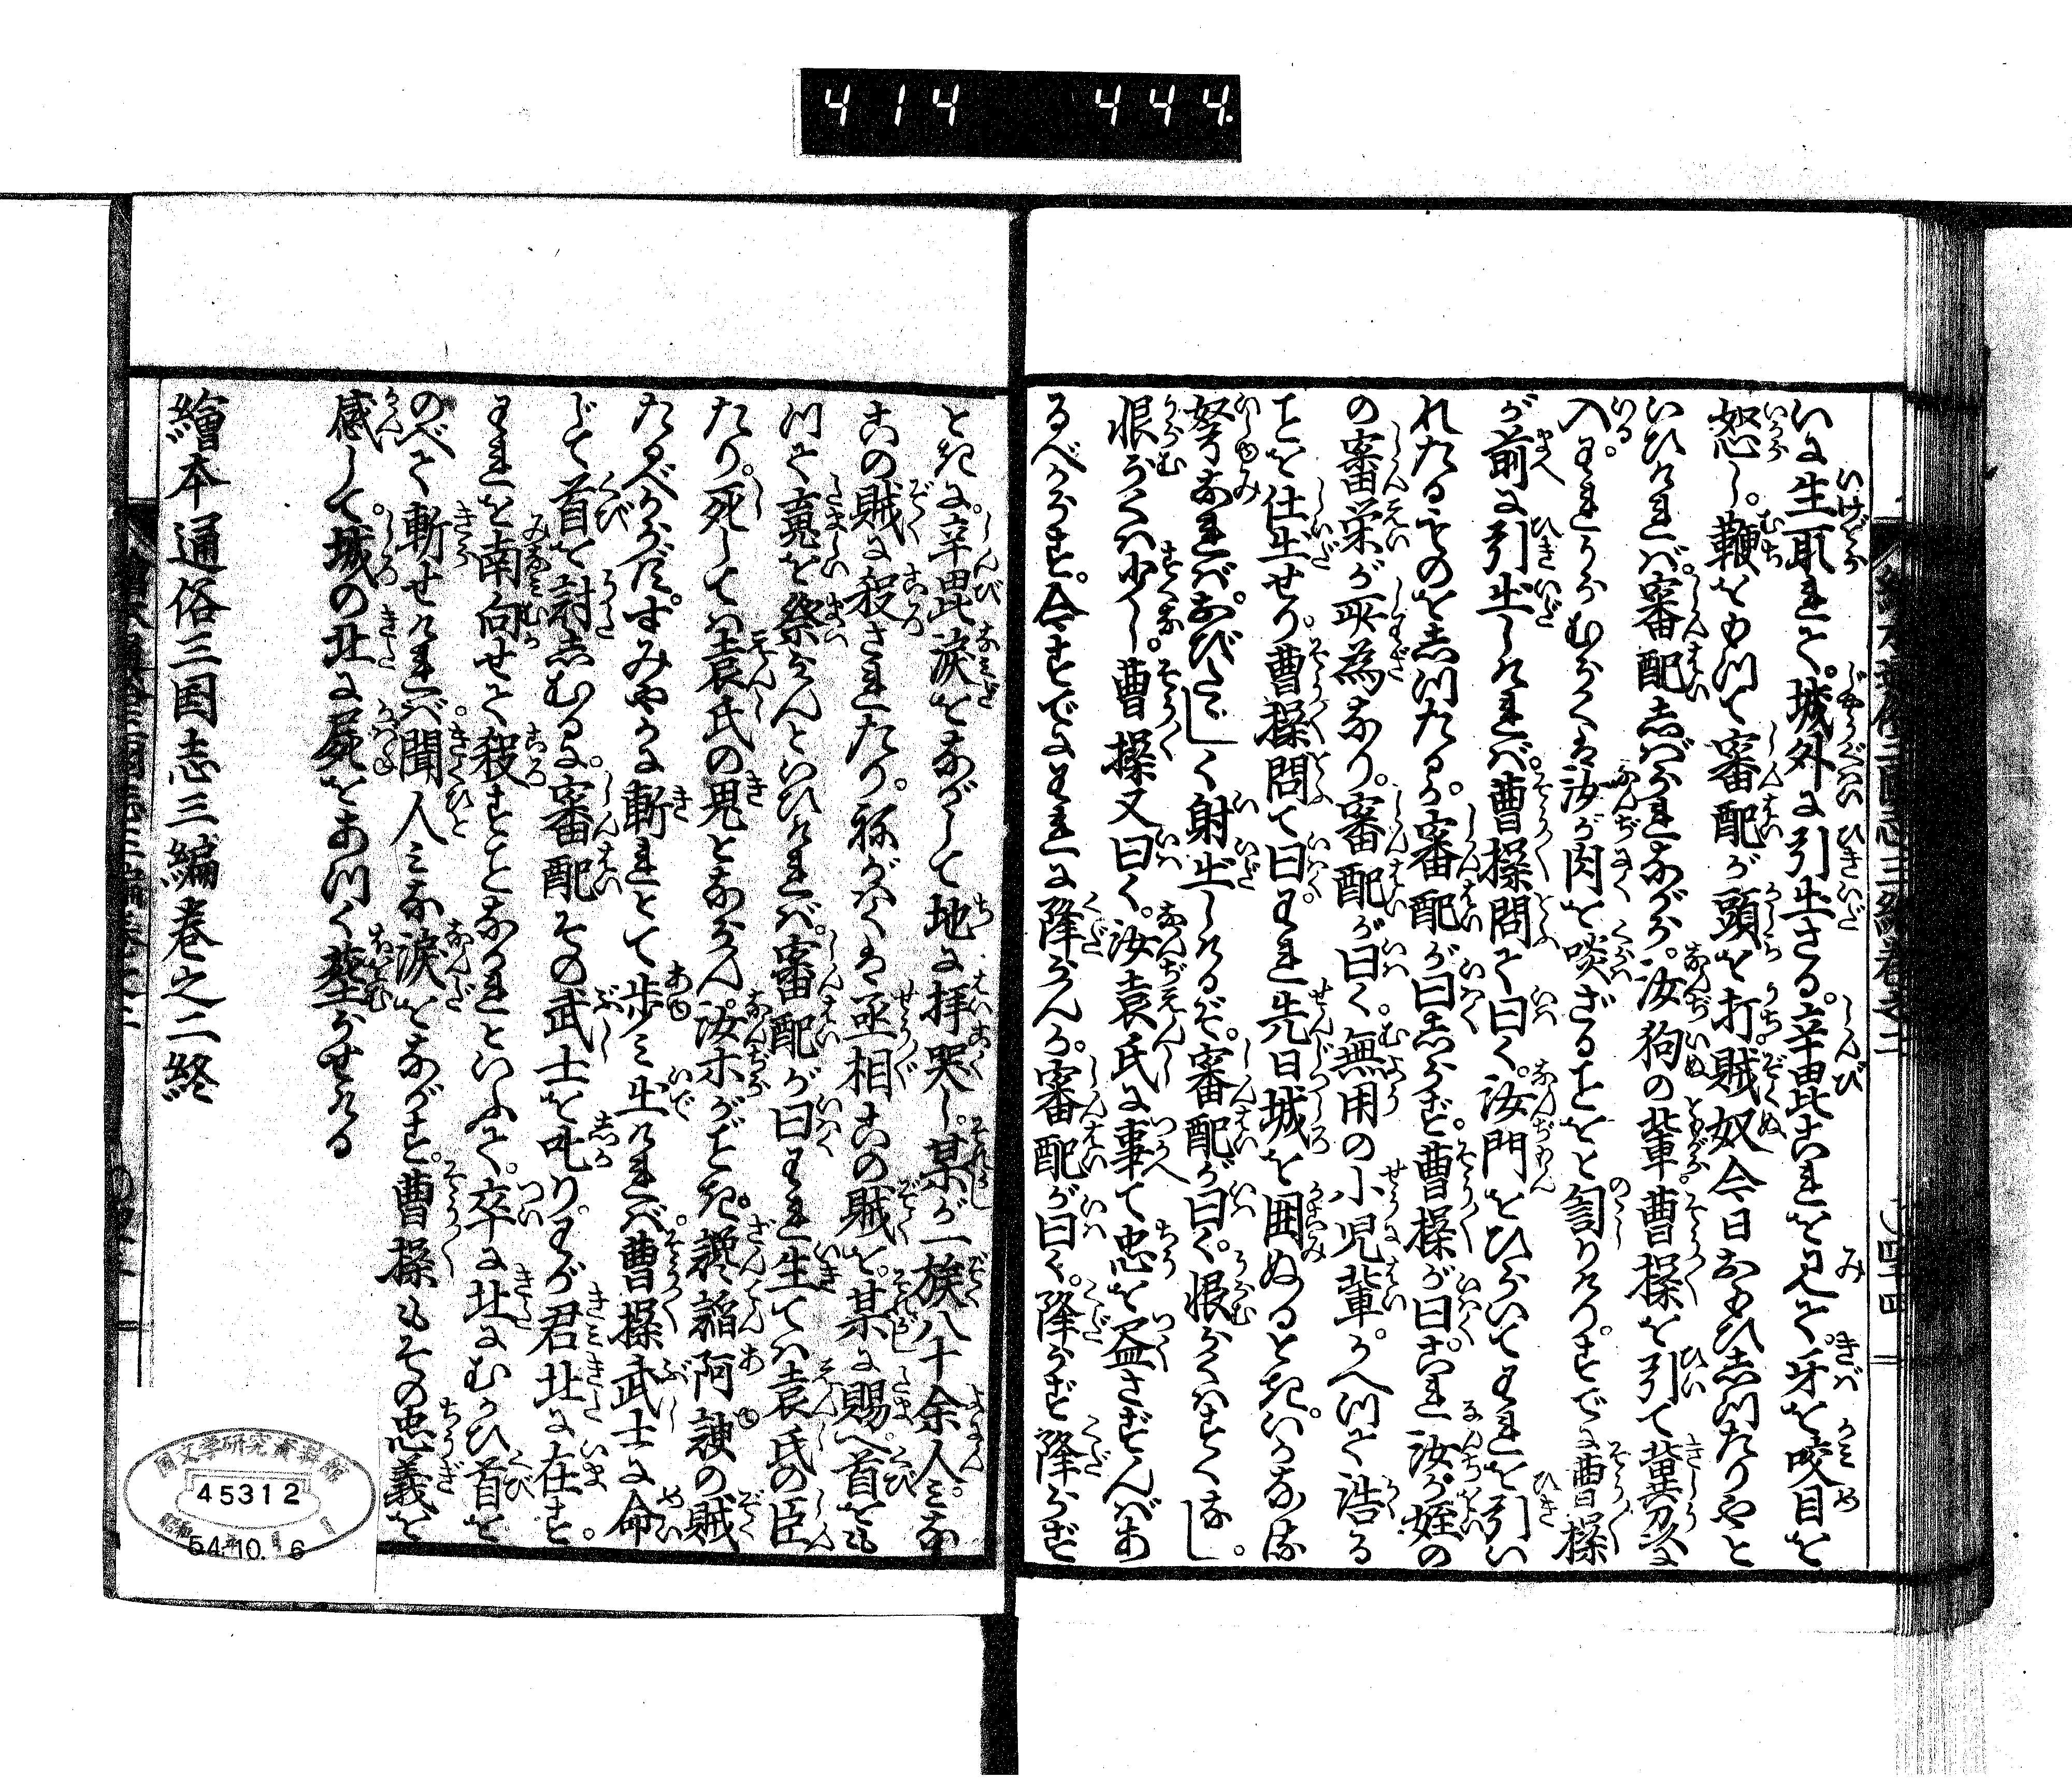 414 444.
いに生取れて。城外に引出さる。辛毘これを見て牙を咬目を
怒し。鞭をもつて審配が頭を打賊奴今日おもひ志つたりやと
いひければ審配志ばられながら。汝狗の輩。曹操を引て冀州に
入。われうらむらくは汝が肉を啖ざることをと訇りけり。すでに曹操
が前に引出しければ。曹操問て曰く。汝門をひらいてわれを引い
れたるものを志つたるか。審配が曰志らず。曹操が曰。これ汝が姪の
の審栄が所為なり。審配が曰く。無用の小児輩。かへつて浩る
ことを仕出せり。曹操問て曰われ先日城を囲ぬるとき。いかなる
弩なればおびたゞしく射出しけるぞ。審配が曰く。恨らくはすくなし。
恨がくは少し。曹操又曰く。汝袁氏に事て忠を盗さずんばあ
るべからず。今すでにわれに降らんか。審配が曰く。降らず降らず
ときに辛毘涙をながして地に拝哭し。某が一族八十余人みな
この賊に殺されたり。ねがはくは丞相この賊を。某に賜へ首をも
つて䰟を祭らんといひければ。審配が曰われ生ては袁氏の臣
たり。死しては袁氏の鬼とならん。汝ホがごとき。讒謟阿諛の賊
たるべからず。すみやかに斬れとて歩み出ければ曹操武士に命
じて首を討志むるに。審配その武士を叱り。わが君北に在す。
われを南向せて殺すことなかれといふて。卒に北にむかひ首を
のべて斬せければ。聞人みな涙をながす。曹操もその忠義を
感じて。城の北に屍をあつく葬らせける
繪本通俗三国志三編巻之二終
国文学研究資料館
45312
54.10.6